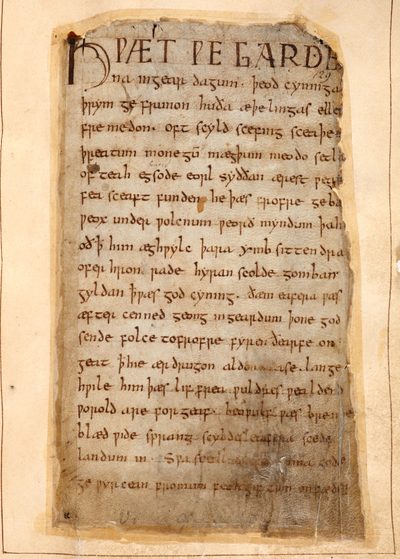 HǷÆT ǷE GARDE
129
na ingear dagum . þeod cyninga
þrym ge frunon huða æþelingas elle
fre medon. oft scyld scefing sceaþe
þreatum monegū mægþum meodo setla
of teah egsode eorl syððan ærest ƿear
fea sceaft funden he þæs frofre geba
ƿeox under ƿolcnum ƿeorð myndum þah
oð ꝥ him æghƿylc þara ymb sittendra
ofer hron rade hyran scolde gomban
gyldan ꝥ ƿæs god cyning. ðæm eafera ƿæs
æfter cenned geong ingeardum þone god
sende folce tofrofre fyren ðearfe on
geat ꝥ hie ær drugon aldor ase. lange
hƿile him þæs lif frea ƿuldres ƿealdend
ƿorold are forgeaf. beoƿulf ƿæs breme
blæd ƿide sprang scyldes eafera scede
landum in. Sƿa sceal uma gode
ge ƿyrcean fromum feoh giftum on fæder